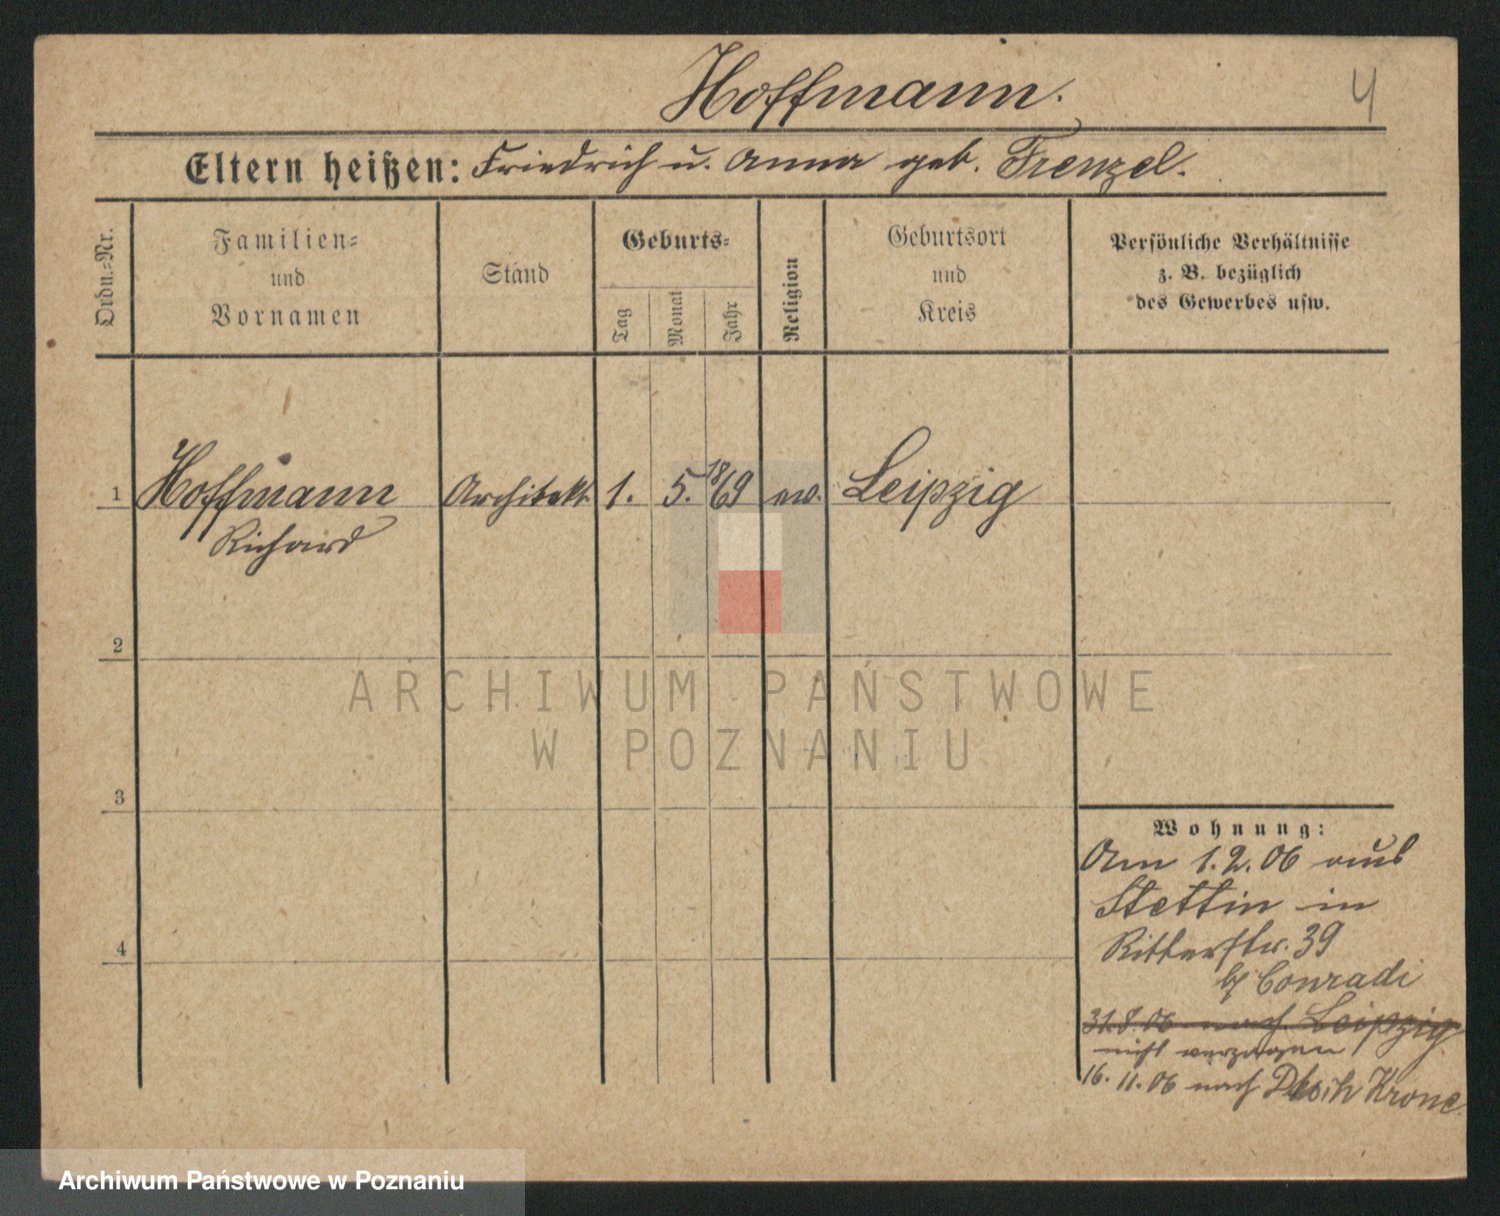 Hoffmann.
4
Eltern heißen: Friedrich u. Anna geb. Frenzel.
Ordn.=Nr.
Familien=
und
Vornamen
Stand
Geburts=
Tag
Monat
Jahr
Religion
Geburtsort
und
Kreis
Persönliche Verhältnisse
z. B. bezüglich
des Gewerbes usw.
1 Hoffmann Architekt 1. 5. 1869 ev. Leipzig
Richard
2
ARCHIWUM PAŃSTWOWE
W POZNANIU
3
Wohnung:
Am 1.2.06 aus
Stettin in
Ritterstr. 39
b/ Conradi
4
31.8.06 nach Leipzig
nicht verzogen
16.11.06 nach Dtsch Krone.
Archiwum Państwowe w Poznaniu